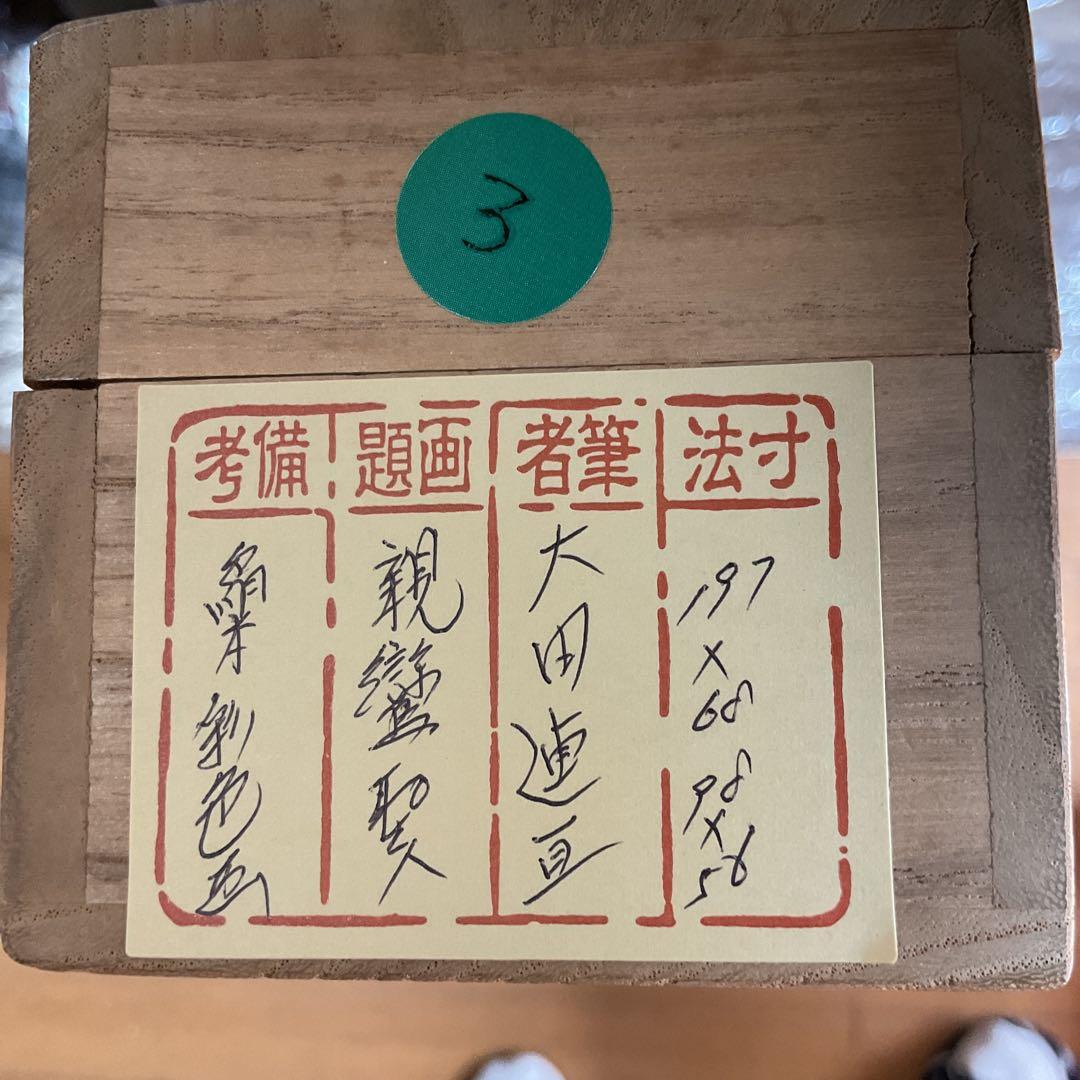 3
寸法
197
×
68
98
×
56
筆者
大田連亘
画題
親鸞聖人
備考
絹本彩色画